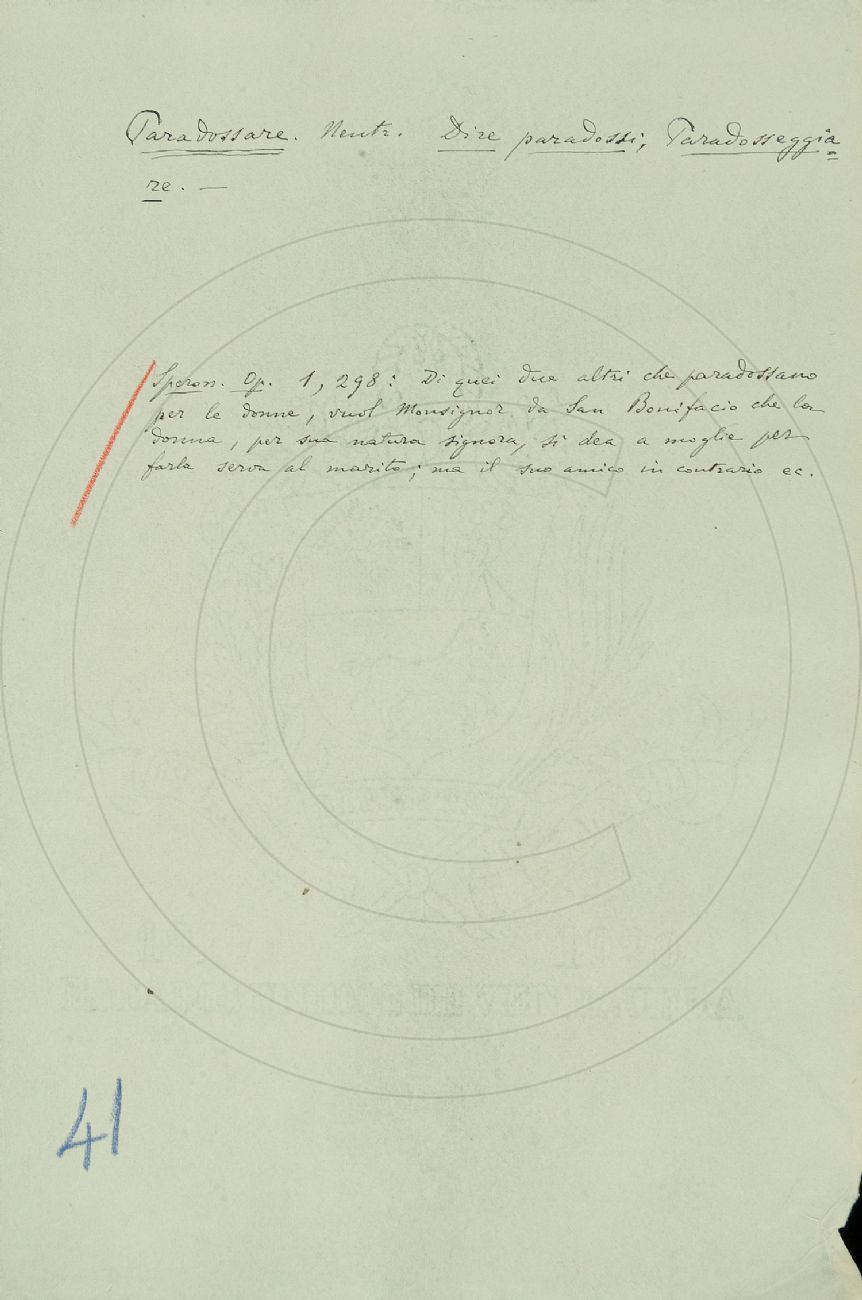 Paradossare. Neutr. Dire paradossi; Paradosseggia=
re. —
Speron. Op. 1, 298: Di quei due altri che paradossano
per le donne, vuol Monsignor da San Bonifacio che la
donna, per sua natura signora, si dea a moglie per
farla serva al marito; ma il suo amico in contrario ec.
41